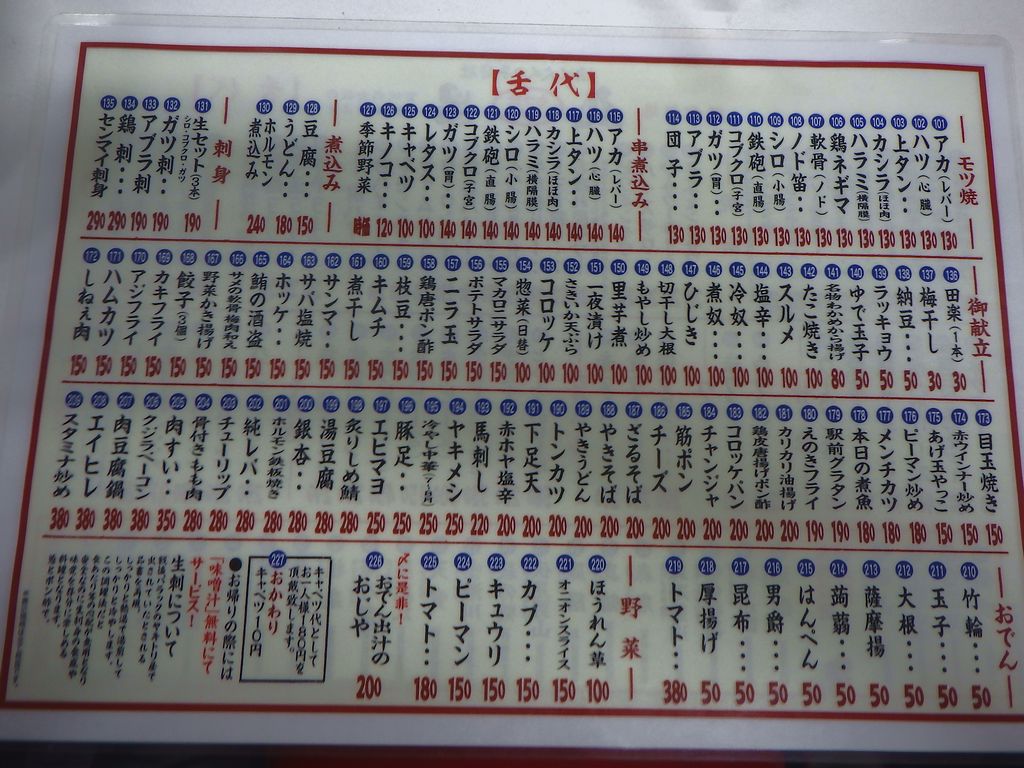 【舌代】
モツ焼
101 アカ(レバー) 130
102 ハツ(心臓) 130
103 上タン・・ 130
104 カシラ(ほほ肉) 130
105 ハラミ(横隔膜) 130
106 鶏ネギマ 130
107 軟骨(ノド) 130
108 ノド笛・・ 130
109 シロ(小腸) 130
110 鉄砲(直腸) 130
111 コブクロ(子宮) 130
112 ガツ(胃)・・ 130
113 アブラ・・ 130
114 団子・・ 130
串煮込み
115 アカ(レバー) 140
116 ハツ(心臓) 140
117 上タン・・ 140
118 カシラ(ほほ肉) 140
119 ハラミ(横隔膜) 140
120 シロ(小腸) 140
121 鉄砲(直腸) 140
122 コブクロ(子宮) 140
123 ガツ(胃)・・ 140
124 レタス・・ 140
125 キャベツ 100
126 キノコ・・ 120
127 季節野菜 時価
煮込み
128 豆腐・・ 150
129 うどん・・ 180
130 ホルモン煮込み 240
刺身
131 生セット(3本) シロ・コブクロ・ガツ 190
132 ガツ刺・・ 190
133 アブラ刺 190
134 鶏刺・・・ 290
135 センマイ刺身 290
御献立
136 田楽(1本) 30
137 梅干し 30
138 納豆・・・ 50
139 ラッキョウ 50
140 ゆで玉子 50
141 名物わかめから揚げ 80
142 たこ焼き 100
143 スルメ 100
144 塩辛・・・ 100
145 冷奴・・・ 100
146 煮奴・・・ 100
147 ひじき 100
148 切干し大根 100
149 もやし炒め 100
150 里芋煮 100
151 一夜漬け 100
152 ささいか天ぷら 100
153 コロッケ 100
154 惣菜(日替) 100
155 マカロニサラダ 150
156 ポテトサラダ 150
157 ニラ玉 150
158 鶏唐ポン酢 150
159 枝豆・・・ 150
160 キムチ 150
161 煮干し 150
162 サンマ・・ 150
163 サバ塩焼 150
164 ホッケ・・ 150
165 鮪の酒盗 150
166 サメの軟骨梅肉和え 150
167 野菜かき揚げ 150
168 餃子(3個) 150
169 カキフライ 150
170 アジフライ 150
171 ハムカツ 150
172 しねぇ肉 150
173 目玉焼き 150
174 赤ウインナー炒め 150
175 あげ玉やっこ 150
176 ピーマン炒め 180
177 メンチカツ 180
178 本日の煮魚 180
179 駅前グラタン 190
180 えのきフライ 190
181 カリカリ油揚げ 200
182 鶏皮唐揚げポン酢 200
183 コロッケパン 200
184 チャンジャ 200
185 筋ポン 200
186 チーズ 200
187 ざるそば 200
188 やきそば 200
189 やきうどん 200
190 トンカツ 200
191 下足天 200
192 赤ホヤ塩辛 200
193 馬刺し 220
194 ヤキメシ 250
195 冷やし中華(7~8月) 250
196 豚足・・ 250
197 エビマヨ 250
198 炙りしめ鯖 280
199 湯豆腐 280
200 銀杏・・ 280
201 ホルモン鉄板焼き 280
202 純レバ・・ 280
203 チューリップ 280
204 骨付きもも肉 280
205 肉すい・・ 350
206 クジラベーコン 380
207 肉豆腐鍋 380
208 エイヒレ 380
209 スタミナ炒め 380
おでん
210 竹輪・・ 50
211 玉子・・・ 50
212 大根・・ 50
213 薩摩揚 50
214 蒟蒻・・・ 50
215 はんぺん 50
216 男爵・・・ 50
217 昆布・・・ 50
218 厚揚げ 50
219 トマト・・ 380
野菜
220 ほうれん草 100
221 オニオンスライス 150
222 カブ・・・ 150
223 キュウリ 150
224 ピーマン 150
225 トマト・・ 180
〆に是非!
226 おでん出汁のおじや 200
キャベツ代として
お一人様180円を
頂戴致します。
227 おかわり
キャベツ10円
●お帰りの際には
「味噌汁」無料にて
サービス!
生刺について